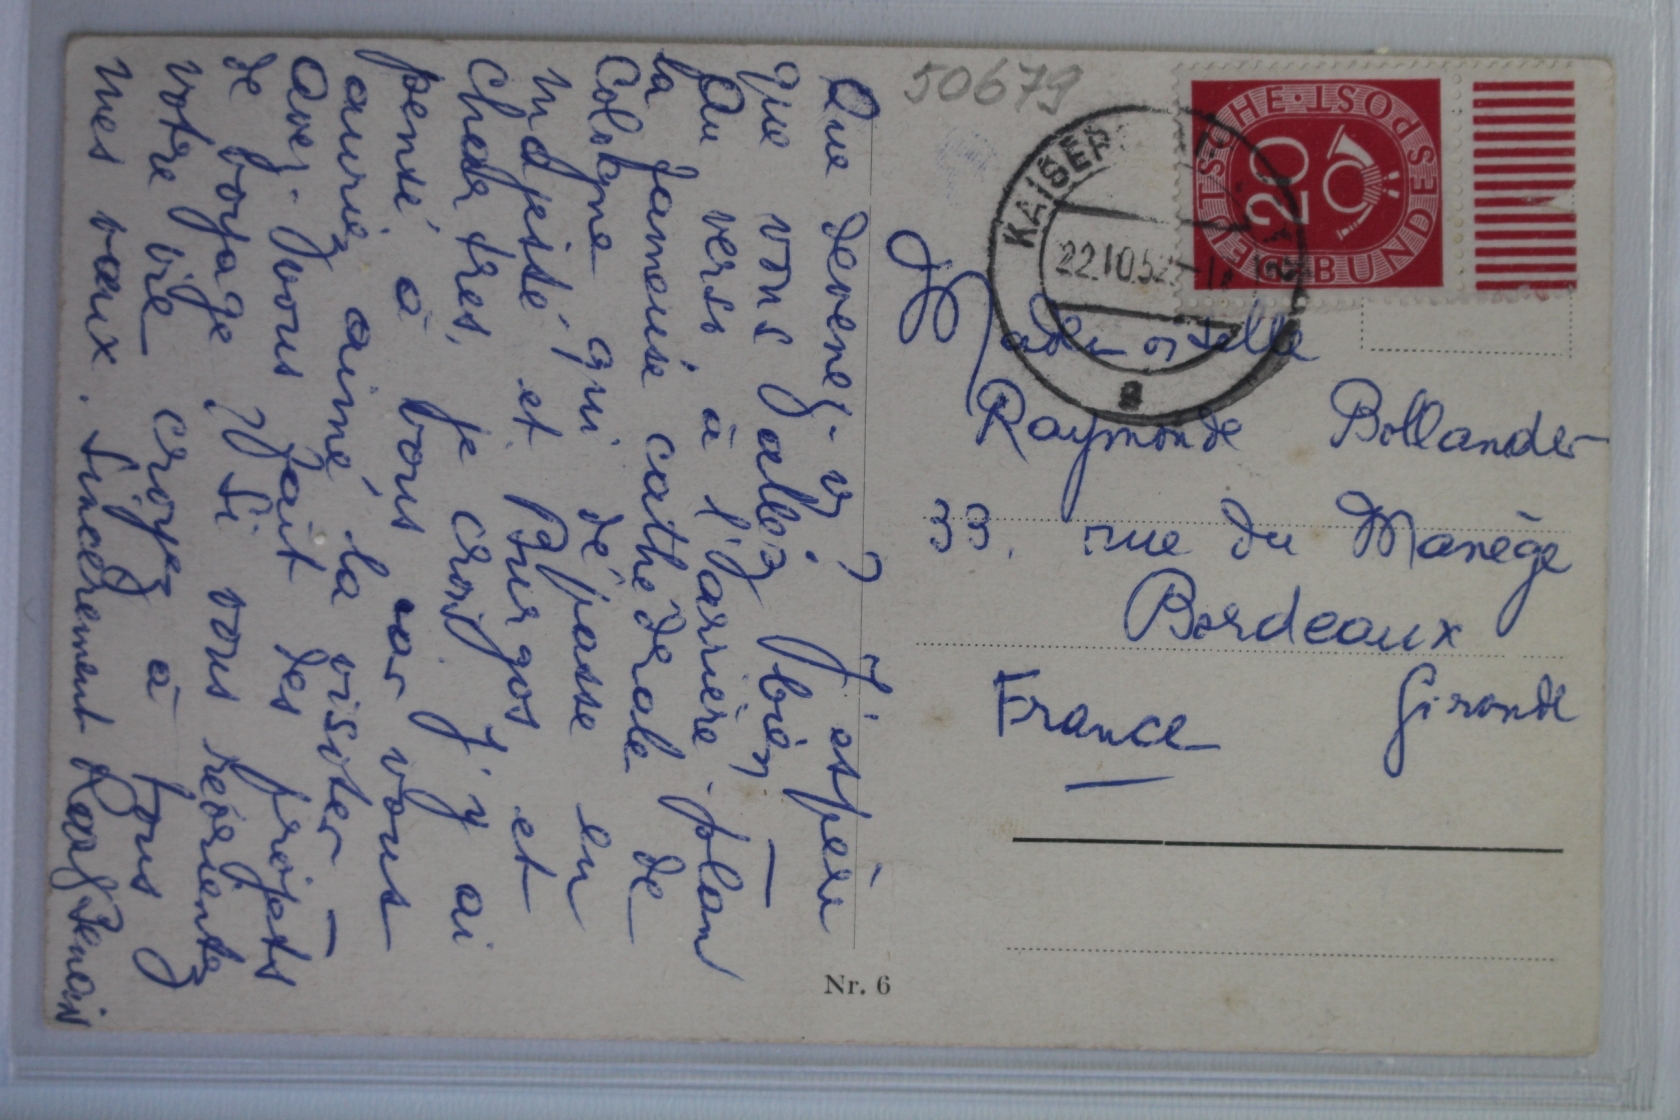 Que devenez-vs ? J'espère
que vous allez bien –
Au vers, à l'arrière-plan
la fameuse cathédrale de
Cologne qui dépasse en
majesté et Burgos et
Chartres, je crois. J'y ai
pensé à vous car vous
auriez aimé la visiter –
Avez-vous fait des projets
de voyage ? Si vous réorientez
votre vie croyez à tous
mes vœux. Sincèrement
50679
DEUTSCHE BUNDESPOST
20
KAISER
22.10.52
a
Mademoiselle
Raymonde Bollander
33. rue du Manège
Bordeaux
Gironde
France
Nr. 6